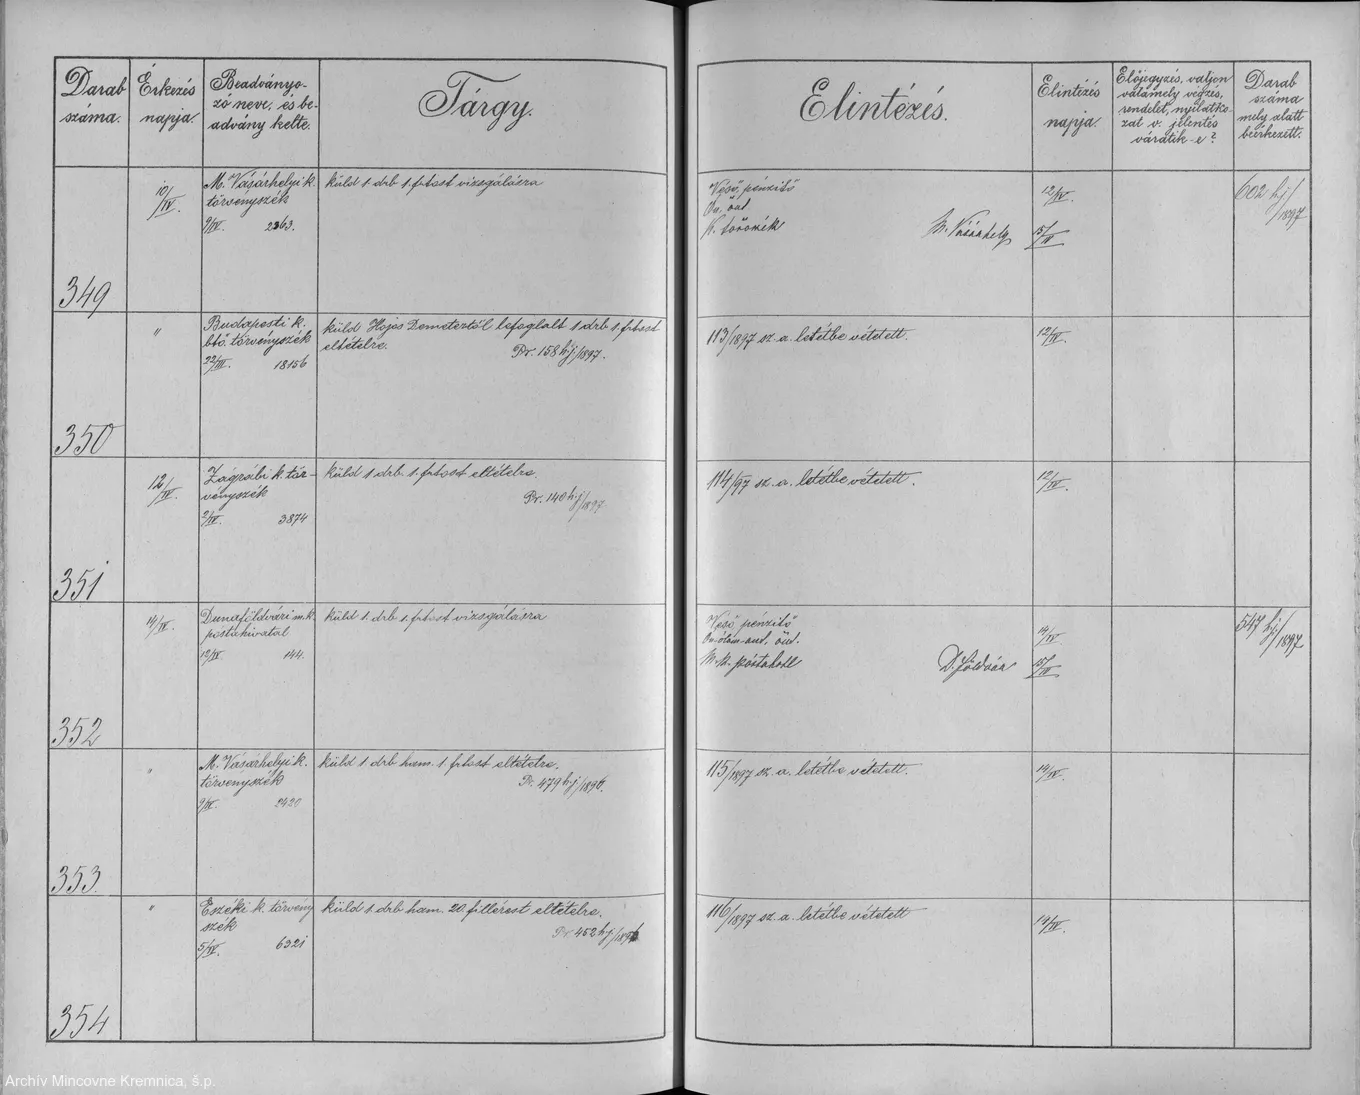 Darab száma.
Érkezés napja
Beadványo-
zó neve, és be-
advány kelte.
Tárgy.
Elintézés.
Elintézés napja.
Előjegyzés, valjon
valamely végzés,
rendelet, nyilatko-
zat v. jelentés
váratik-e?
Darab
száma
mely alatt
beérkezett.
349
10/IV.
M. Vásárhelyi k.
törvényszék
9/IV. 2263.
küld 1 drb 1 frtost vizsgálásra
Véső, pénzitő
K. törvszék M. Vásárhely
12/IV.
15/IV
602 hj/1897
350
"
Budapesti k.
btő. törvényszék
22/III. 18156
küld Hojos Demetertől lefoglalt 1 drb 1 frtost
eltételre. Pr. 158 hj/1897.
113/1897 sz. a. letétbe vétetett.
12/IV.
351
12/IV.
Zágrábi k. tör-
vényszék
2/IV. 3874
küld 1 drb. 1 frtost eltételre.
Pr. 140 hj/1897
114/97 sz. a. letétbe vétetett.
12/IV.
352
14/IV.
Dunaföldvári m. k.
postahivatal
12/IV. 144.
küld 1 drb 1 frtost vizsgálásra
Véső pénzitő
M. k. postahotl D. földvár
14/IV
15/IV
547 hj/1897
353
"
M. Vásárhelyi k.
törvényszék
9/IV. 2420
küld 1 drb ham. 1 frtost eltételre.
Pr. 479 hj/1896.
115/1897 sz. a. letétbe vétetett.
14/IV.
354
"
Eszéki k. törvény
szék
5/IV. 6321
küld 1 drb ham. 20 fillérest eltételre.
Pr. 452 hj/1896
116/1897 sz. a. letétbe vétetett
14/IV.
Archív Mincovne Kremnica, š.p.